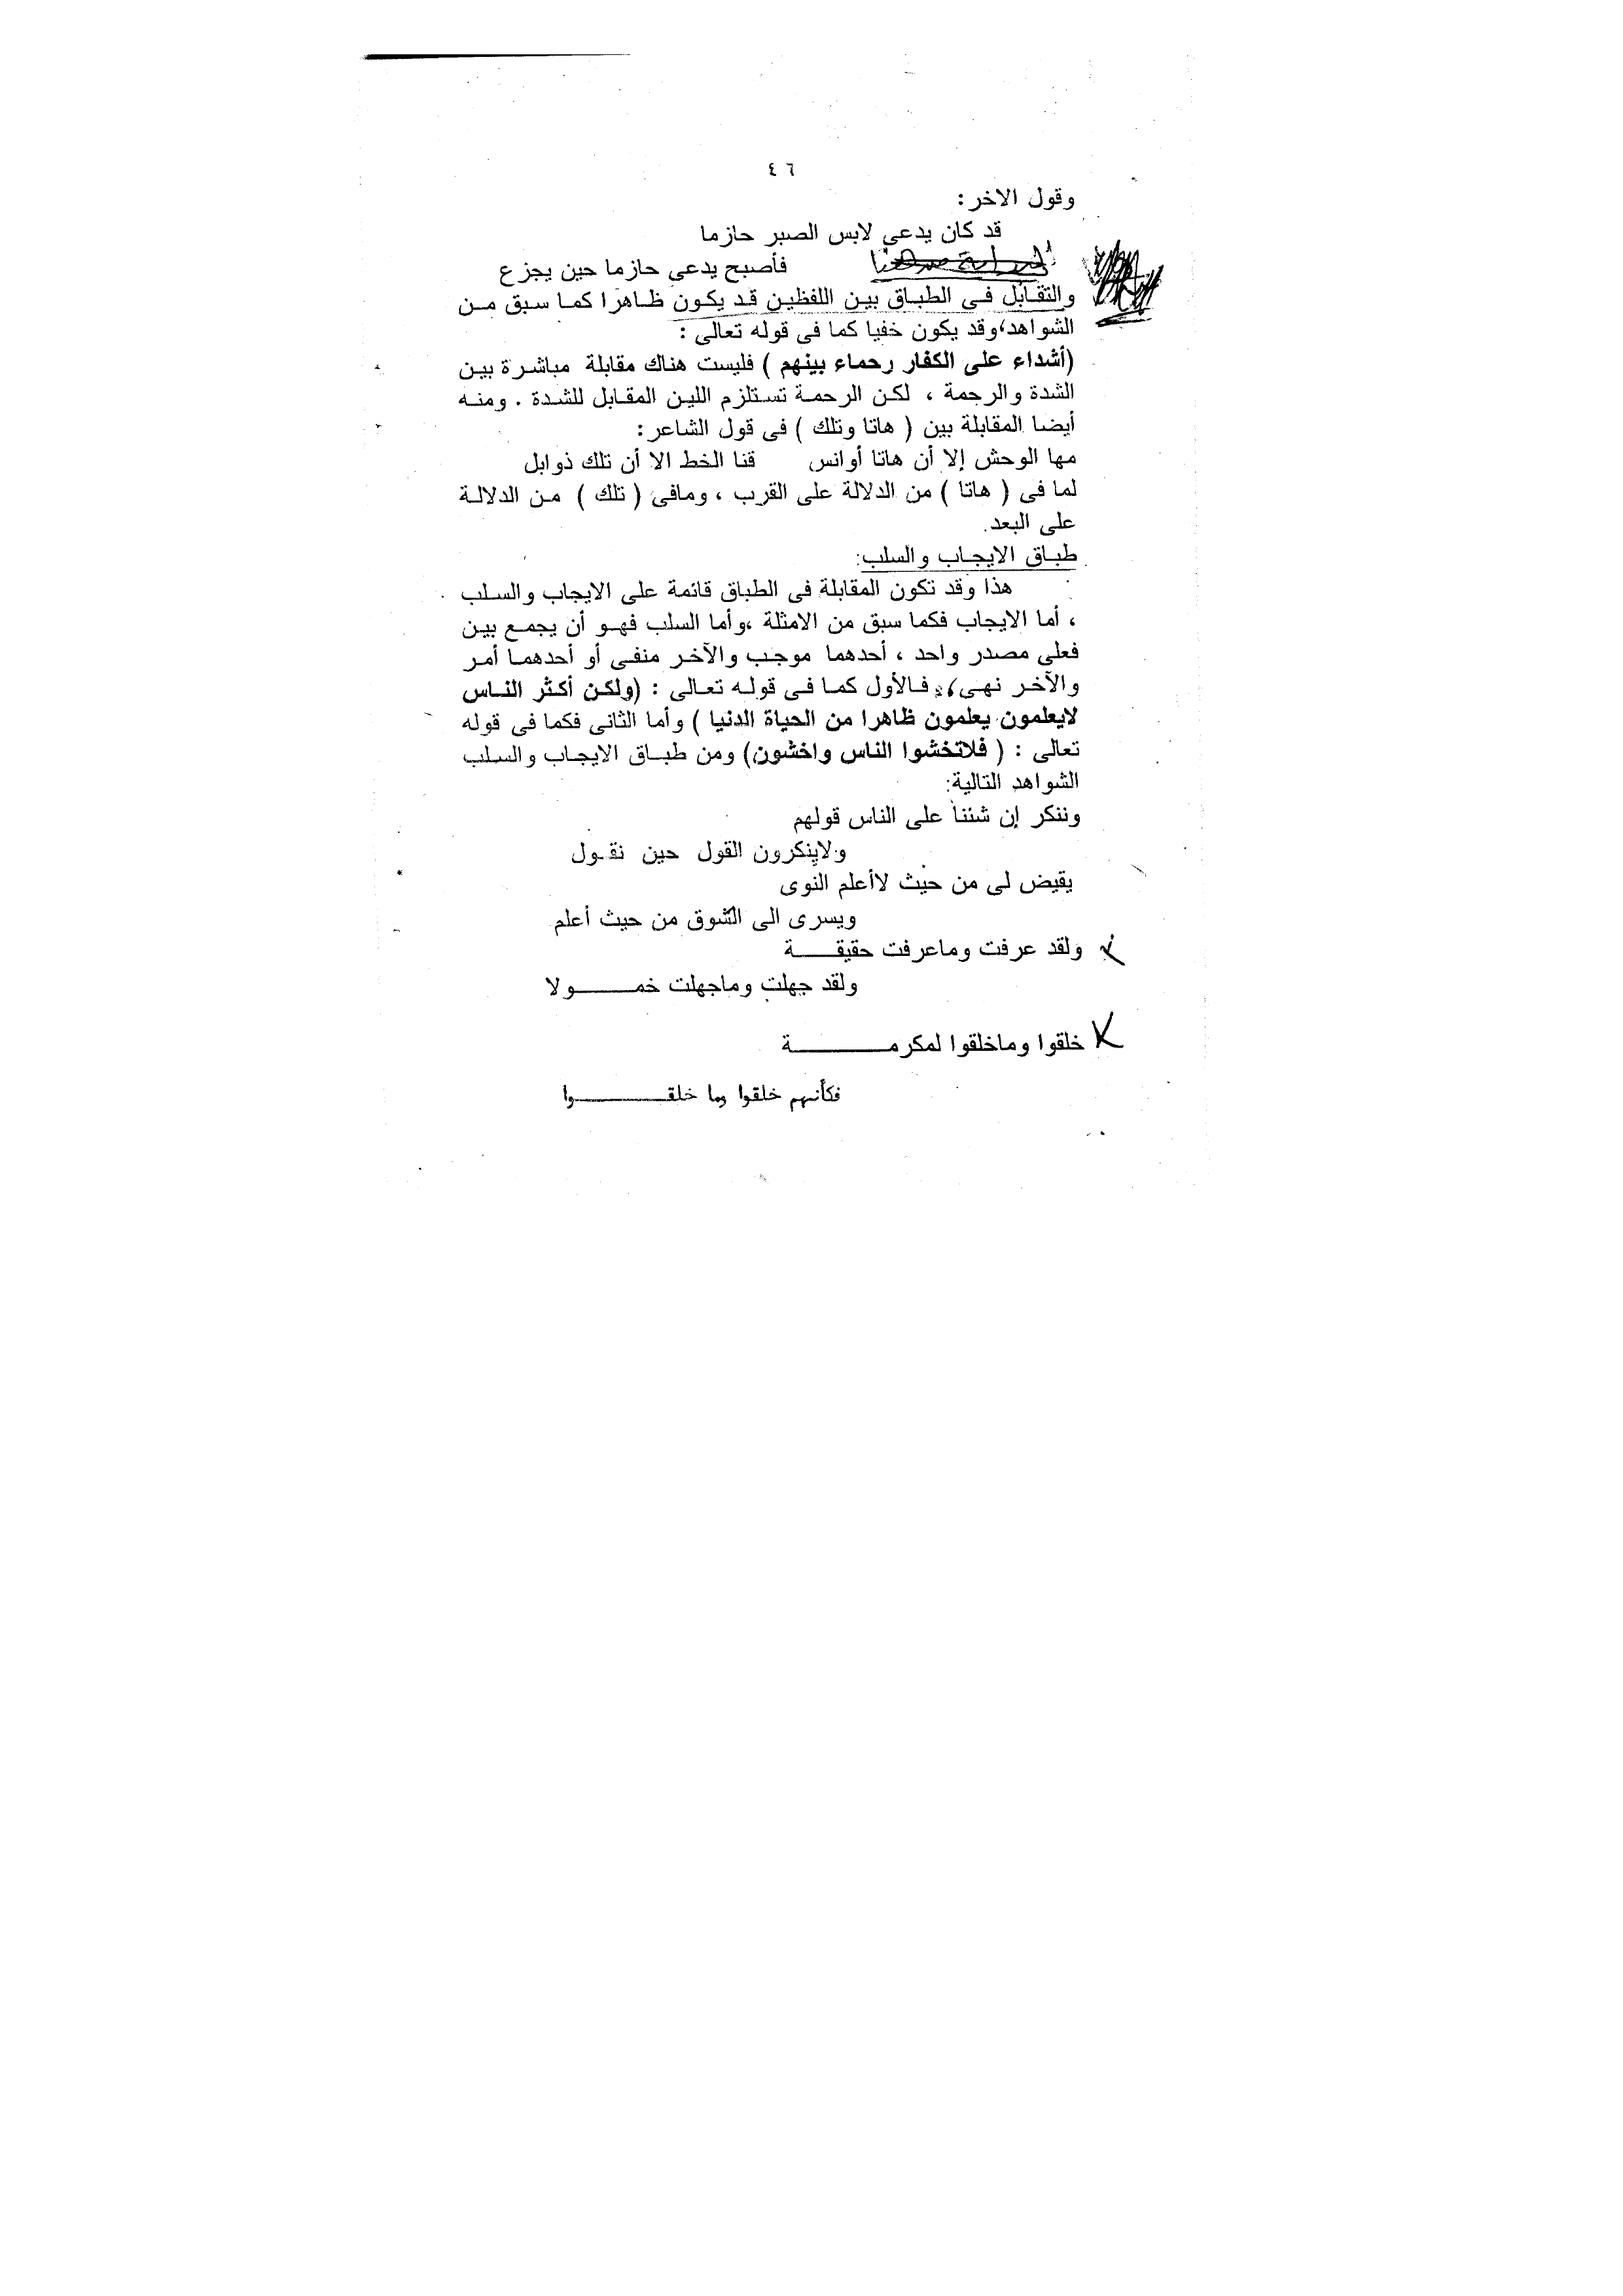 ٤٦
وقول الاخر :
قد كان يدعى لابس الصبر حازما
فأصبح يدعى حازما حين يجزع
والتقابل فى الطباق بين اللفظين قد يكون ظاهرا كما سبق من
الشواهد،وقد يكون خفيا كما فى قوله تعالى :
(أشداء على الكفار رحماء بينهم ) فليست هناك مقابلة مباشرة بين
الشدة والرحمة ، لكن الرحمة تستلزم اللين المقابل للشدة . ومنه
أيضا المقابلة بين ( هاتا وتلك ) فى قول الشاعر :
مها الوحش إلا أن هاتا أوانس قنا الخط الا أن تلك ذوابل
لما فى ( هاتا ) من الدلالة على القرب ، ومافى ( تلك ) من الدلالة
على البعد.
طباق الايجاب والسلب:
هذا وقد تكون المقابلة فى الطباق قائمة على الايجاب والسلب
، أما الايجاب فكما سبق من الامثلة ،وأما السلب فهو أن يجمع بين
فعلى مصدر واحد ، أحدهما موجب والآخر منفى أو أحدهما أمر
والآخر نهى ، فالأول كما فى قوله تعالى : (ولكن أكثر الناس
لايعلمون يعلمون ظاهرا من الحياة الدنيا ) وأما الثانى فكما فى قوله
تعالى : ( فلاتخشوا الناس واخشون) ومن طباق الايجاب والسلب
الشواهد التالية:
وننكر إن شئنا على الناس قولهم
ولاينكرون القول حين نقول
يقيض لى من حيث لاأعلم النوى
ويسرى الى الشوق من حيث أعلم
ولقد عرفت وماعرفت حقيقـــة
ولقد جهلت وماجهلت خمــــولا
خلقوا وماخلقوا لمكرمـــــــة
فكأنهم خلقوا وما خلقـــــــوا